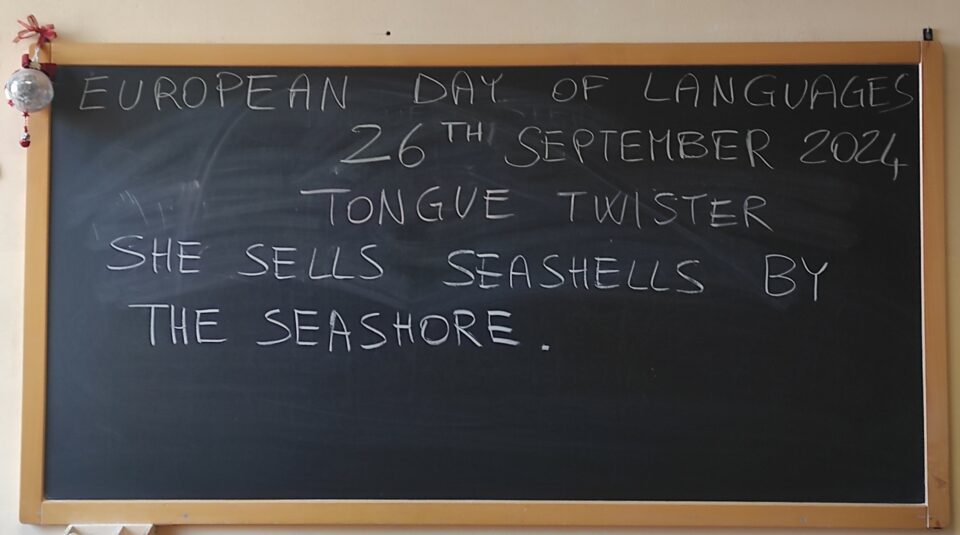 EUROPEAN DAY OF LANGUAGES
26TH SEPTEMBER 2024
TONGUE TWISTER
SHE SELLS SEASHELLS BY
THE SEASHORE.